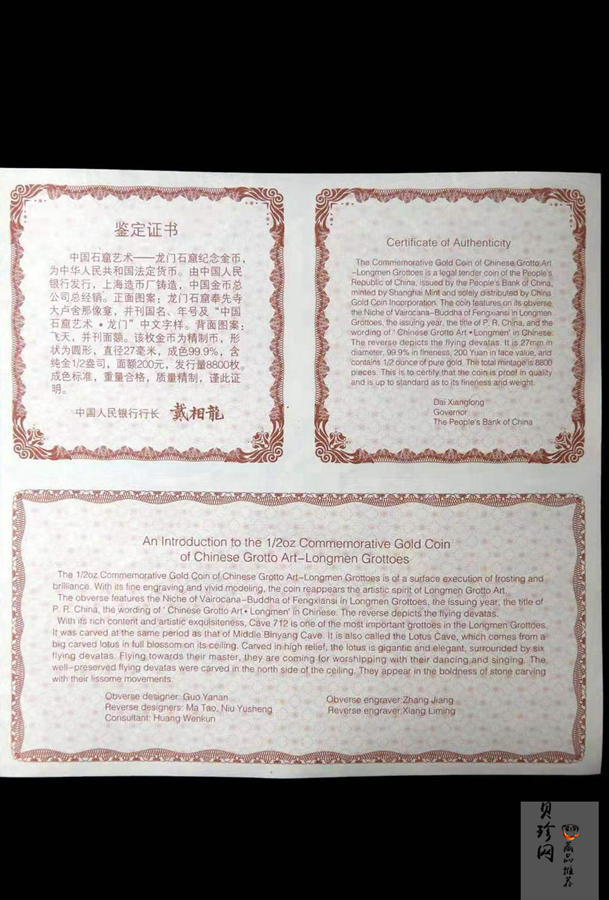 鉴定证书
中国石窟艺术——龙门石窟纪念金币，
为中华人民共和国法定货币。由中国人民
银行发行，上海造币厂铸造，中国金币总
公司总经销。正面图案：龙门石窟奉先寺
大卢舍那像龛，并刊国名、年号及“中国
石窟艺术•龙门”中文字样。背面图案：
飞天，并刊面额。该枚金币为精制币，形
状为圆形，直径27毫米，成色99.9%，含
纯金1/2盎司，面额200元，发行量8800枚。
成色标准，重量合格，质量精制，谨此证
明。
中国人民银行行长 戴相龍
Certificate of Authenticity
The Commemorative Gold Coin of Chinese Grotto Art
-Longmen Grottoes is a legal tender coin of the People's
Republic of China, issued by the People's Bank of China,
minted by Shanghai Mint and solely distributed by China
Gold Coin Incorporation. The coin features on its obverse
the Niche of Vairocana-Buddha of Fengxiansi in Longmen
Grottoes, the issuing year, the title of P. R. China, and the
wording of ' Chinese Grotto Art•Longmen' in Chinese.
The reverse depicts the flying devatas. It is 27mm in
diameter, 99.9% in fineness, 200 Yuan in face value, and
contains 1/2 ounce of pure gold. The total mintage is 8800
pieces. This is to certify that the coin is proof in quality
and is up to standard as to its fineness and weight.
Dai Xianglong
Governor
The People's Bank of China
An Introduction to the 1/2oz Commemorative Gold Coin
of Chinese Grotto Art-Longmen Grottoes
The 1/2oz Commemorative Gold Coin of Chinese Grotto Art-Longmen Grottoes is of a surface execution of frosting and
brilliance. With its fine engraving and vivid modeling, the coin reappears the artistic spirit of Longmen Grotto Art.
The obverse features the Niche of Vairocana-Buddha of Fengxiansi in Longmen Grottoes, the issuing year, the title of
P. R. China, the wording of ' Chinese Grotto Art•Longmen' in Chinese. The reverse depicts the flying devatas.
With its rich content and artistic exquisiteness, Cave 712 is one of the most important grottoes in the Longmen Grottoes.
It was carved at the same period as that of Middle Binyang Cave. It is also called the Lotus Cave, which comes from a
big carved lotus in full blossom on its ceiling. Carved in high relief, the lotus is gigantic and elegant, surrounded by six
flying devatas. Flying towards their master, they are coming for worshipping with their dancing and singing. The
well-preserved flying devatas were carved in the north side of the ceiling. They appear in the boldness of stone carving
with their lissome movements.
Obverse designer: Guo Yanan
Reverse designers: Ma Tao, Niu Yusheng
Consultant: Huang Wenkun
Obverse engraver:Zhang Jiang
Reverse engraver:Xiang Liming
贝珍网
藏品推荐